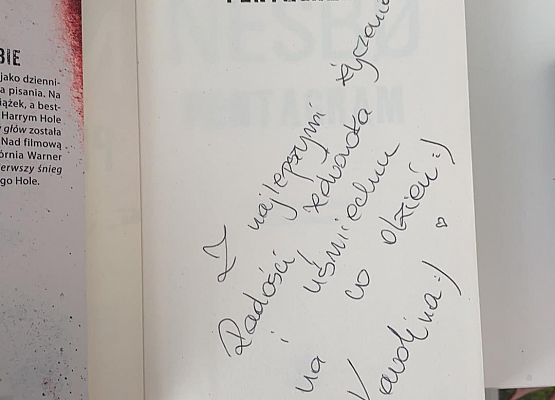 BIE
jako dzienni-
a pisania. Na
iążek, a best-
Harrym Hole
głów została
Nad filmową
órnia Warner
ierwszy śnieg
go Hole.
NESBØ
PENTAGRAM
Z najlepszymi życzenia
Radości
i uśmiechu
na co dzień :)
Karolina :)